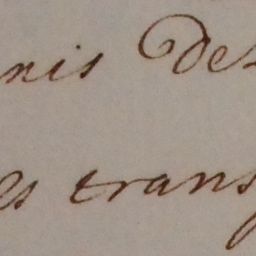 nis de
es trans